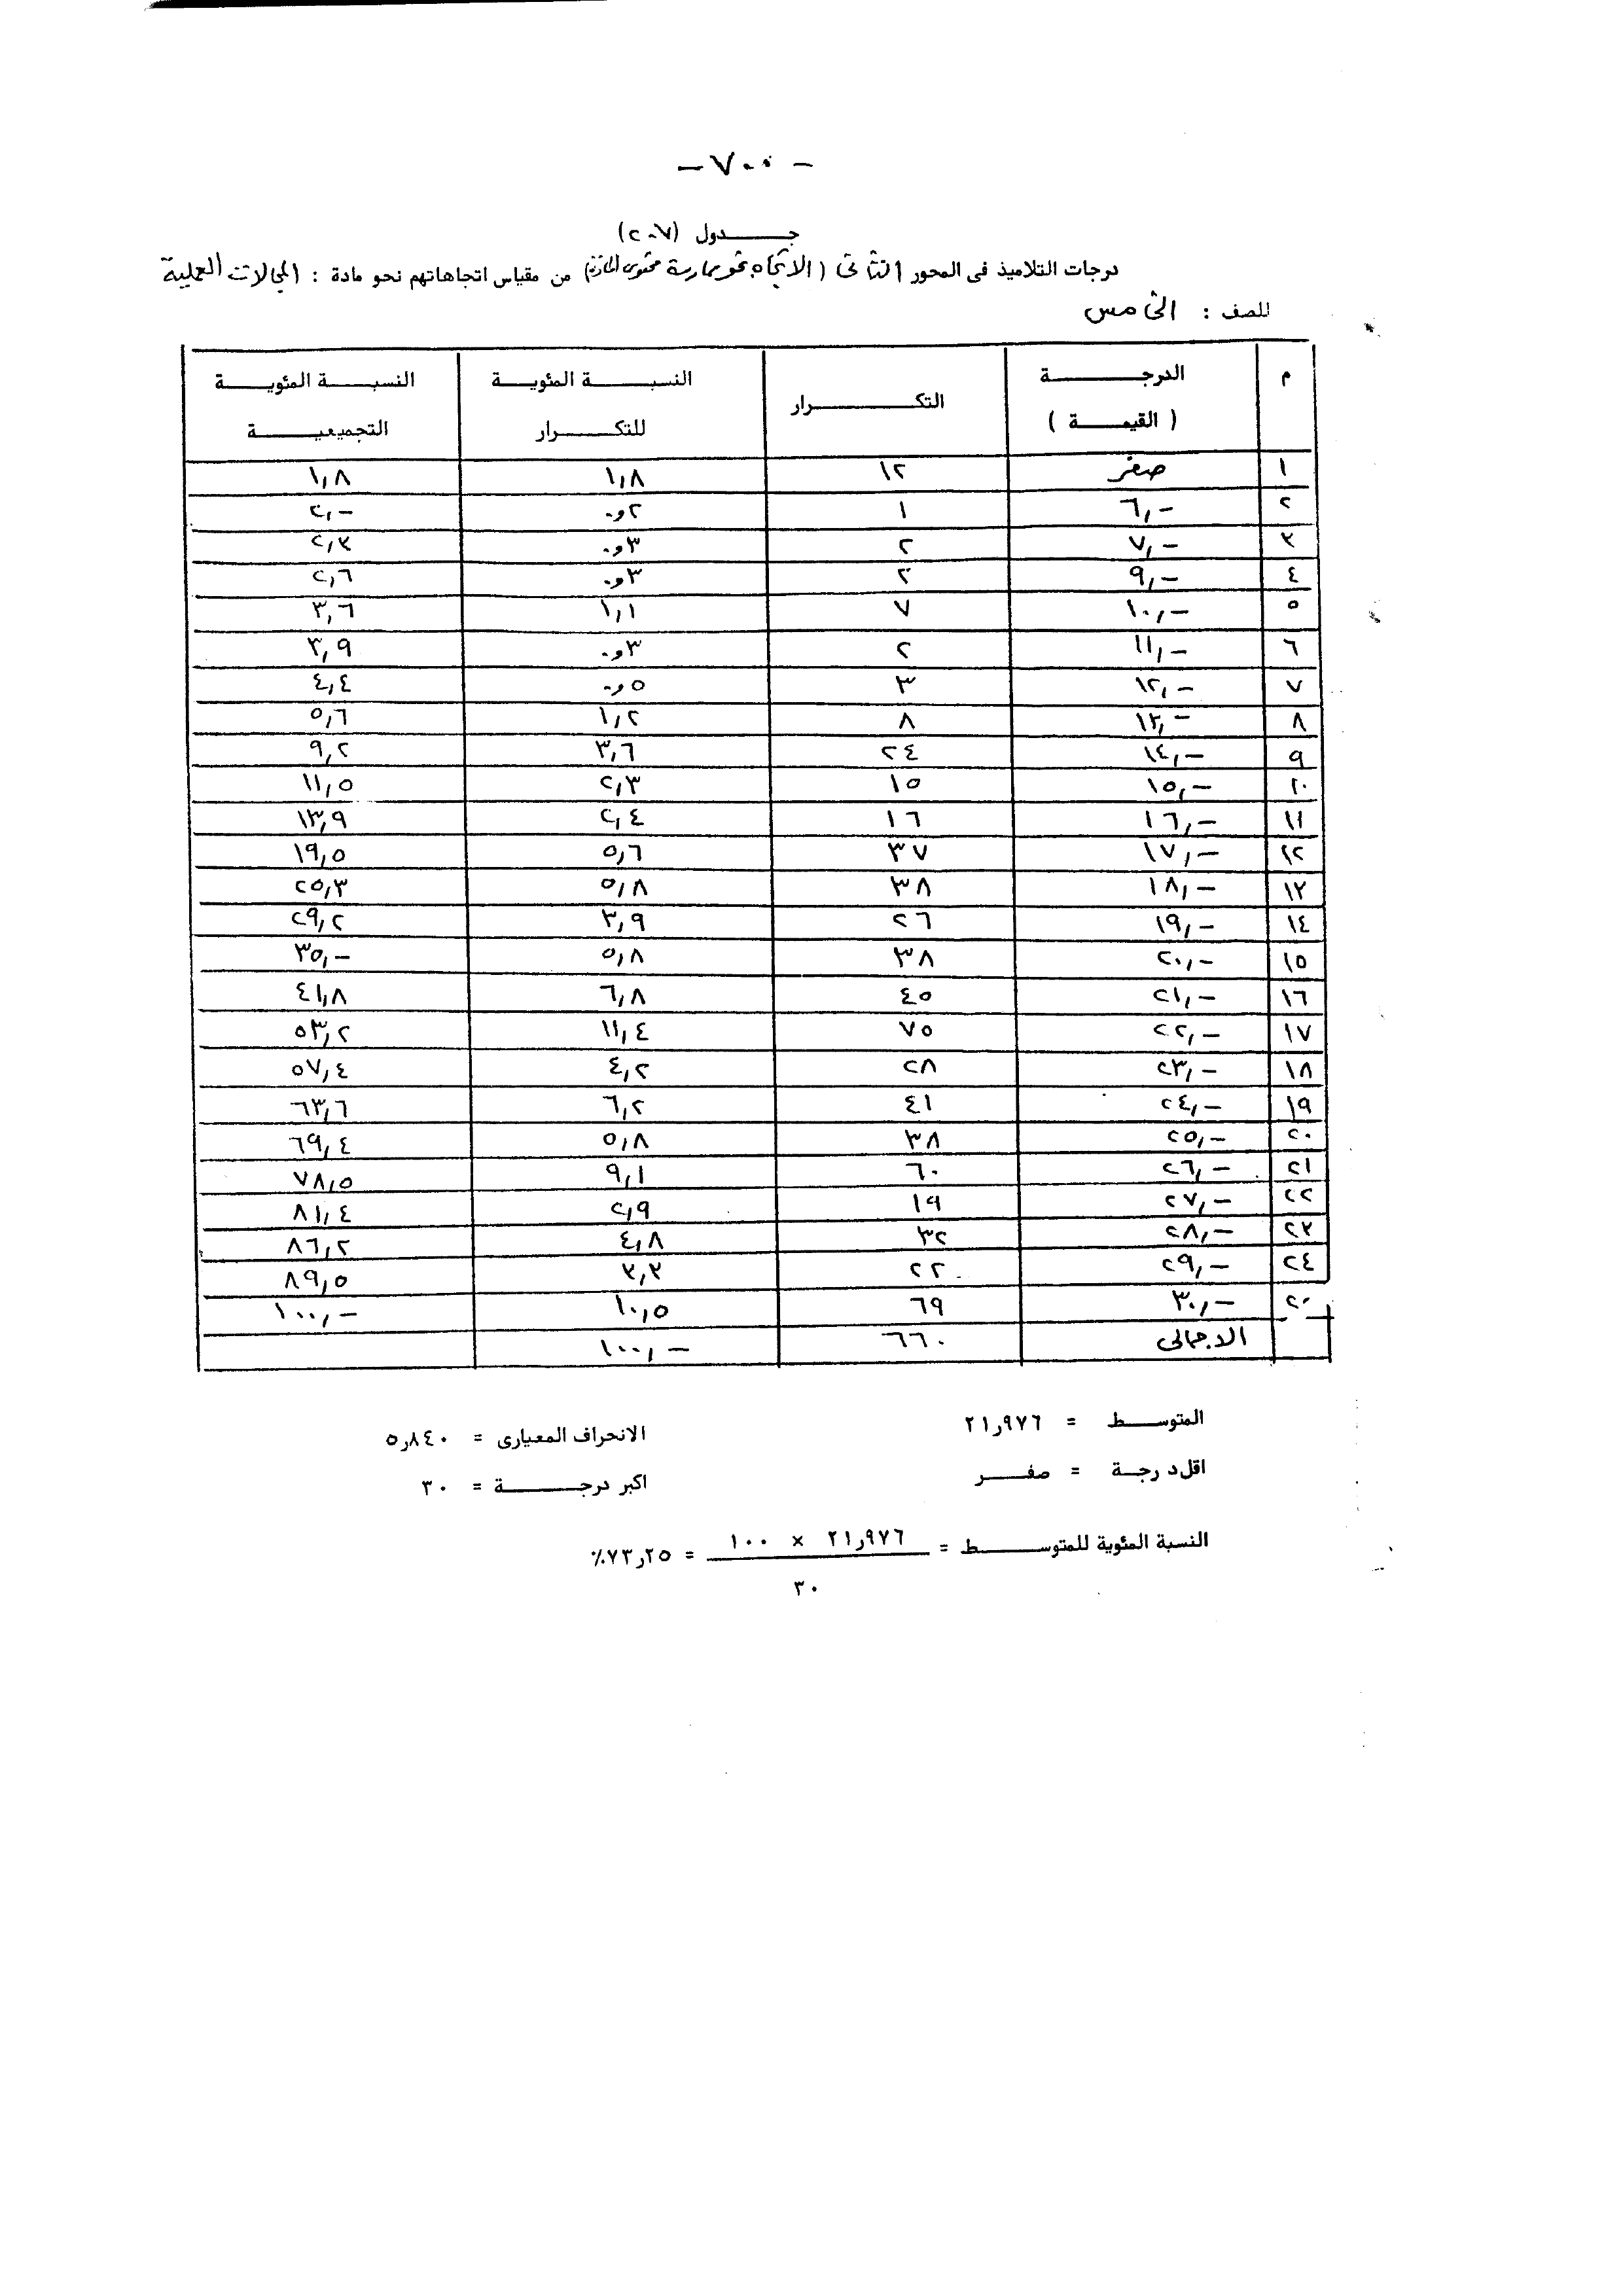 - ٧٠٠ -
جـــدول (٢٠٧)
درجات التلاميذ فى المحور الثانى (الاتجاه نحو ممارسة محتوى المادة) من مقياس اتجاهاتهم نحو مادة : المجالات العملية
للصف : الخامس
م الدرجـــة ( القيمـــة ) التكـــرار النسبـــة المئويـــة للتكـــرار النسبـــة المئويـــة التجميعيـــة
١ صفر ١٢ ١,٨ ١,٨
٢ ٦,- ١ ٢و٠ ٢,-
٣ ٧,- ٢ ٣و٠ ٢,٣
٤ ٩,- ٢ ٣و٠ ٢,٦
٥ ١٠,- ٧ ١,١ ٣,٦
٦ ١١,- ٢ ٣و٠ ٣,٩
٧ ١٢,- ٣ ٥و٠ ٤,٤
٨ ١٣,- ٨ ١,٢ ٥,٦
٩ ١٤,- ٢٤ ٣,٦ ٩,٢
١٠ ١٥,- ١٥ ٢,٣ ١١,٥
١١ ١٦,- ١٦ ٢,٤ ١٣,٩
١٢ ١٧,- ٣٧ ٥,٦ ١٩,٥
١٣ ١٨,- ٣٨ ٥,٨ ٢٥,٣
١٤ ١٩,- ٢٦ ٣,٩ ٢٩,٢
١٥ ٢٠,- ٣٨ ٥,٨ ٣٥,-
١٦ ٢١,- ٤٥ ٦,٨ ٤١,٨
١٧ ٢٢,- ٧٥ ١١,٤ ٥٣,٢
١٨ ٢٣,- ٢٨ ٤,٢ ٥٧,٤
١٩ ٢٤,- ٤١ ٦,٢ ٦٣,٦
٢٠ ٢٥,- ٣٨ ٥,٨ ٦٩,٤
٢١ ٢٦,- ٦٠ ٩,١ ٧٨,٥
٢٢ ٢٧,- ١٩ ٢,٩ ٨١,٤
٢٣ ٢٨,- ٣٢ ٤,٨ ٨٦,٢
٢٤ ٢٩,- ٢٢ ٣,٣ ٨٩,٥
٢٥ ٣٠,- ٦٩ ١٠,٥ ١٠٠,-
الاجمالى ٦٦٠ ١٠٠,-
المتوســـط = ٢١٫٩٧٦ الانحراف المعيارى = ٥٫٨٤٠
اقل درجـة = صفـــر اكبر درجـــة = ٣٠
النسبة المئوية للمتوســـط = ٢١٫٩٧٦ × ١٠٠ = ٧٣٫٢٥٪
٣٠